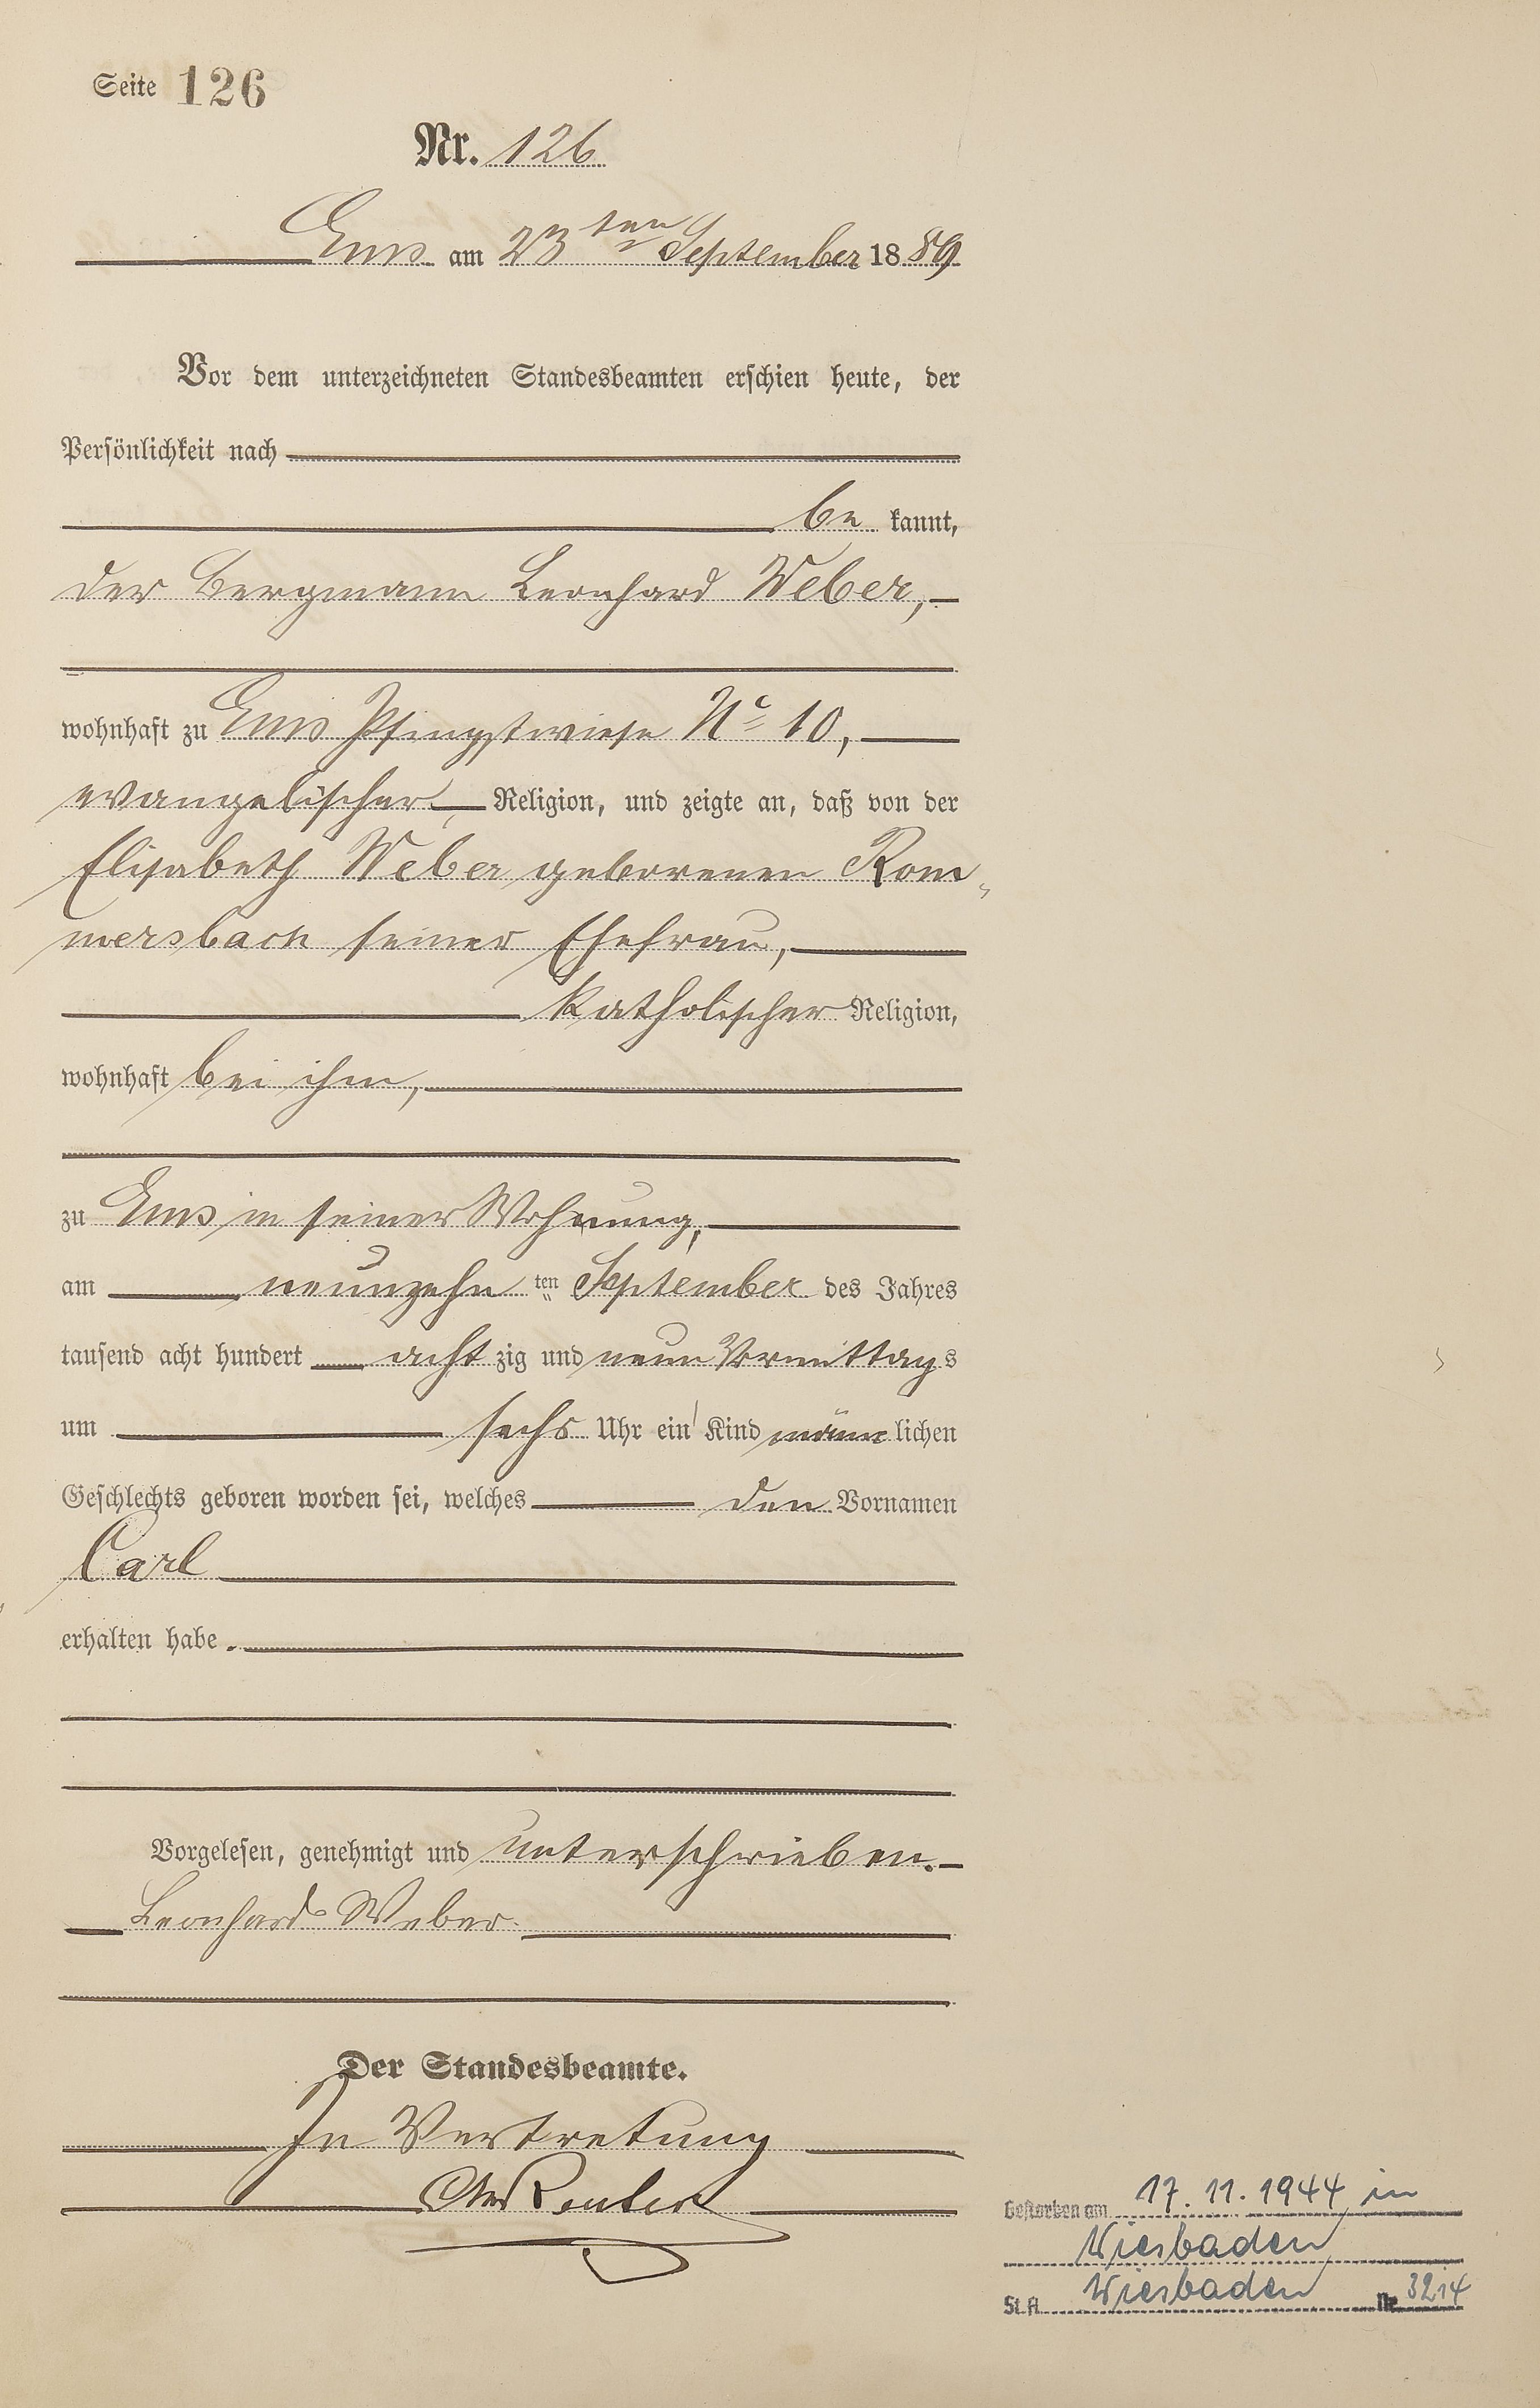 Seite 126
Nr. 126
Ems am 23ten September 1889
Vor dem unterzeichneten Standesbeamten erschien heute, der
Persönlichkeit nach
be kannt,
der Bergmann Leonhard Weber,
wohnhaft zu Ems Pfingstwiese No 10,
evangelischer Religion, und zeigte an, daß von der
Elisabeth Weber geborenen Rom-
mersbach seiner Ehefrau,
katholischer Religion,
wohnhaft bei ihm,
zu Ems in seiner Wohnung,
am neunzehn ten September des Jahres
tausend acht hundert acht zig und neun Vormittags
um sechs Uhr ein Kind männ lichen
Geschlechts geboren worden sei, welches den Vornamen
Carl
erhalten habe.
Vorgelesen, genehmigt und unterschrieben.
Leonhard Weber.
Der Standesbeamte.
In Vertretung
Gestorben am 17.11.1944 in
Wiesbaden
St.A. Wiesbaden Nr. 3214